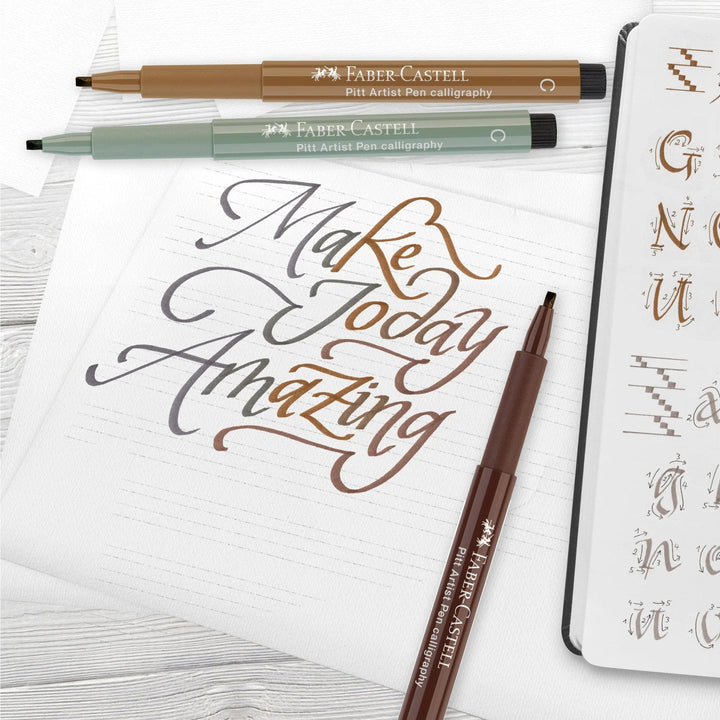 FABER-CASTELL C
Pitt Artist Pen calligraphy
FABER-CASTELL C
Pitt Artist Pen calligraphy
Make
Today
Amazing
FABER-CASTELL
Pitt Artist Pen calligraphy
G
N
U
g
n
u